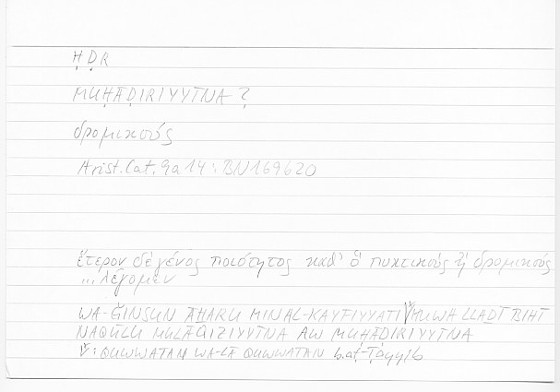 ḤḌR
MUḤĀḌIRIYYĪNA ?
δρομικούς
Arist. Cat. 9a14 : BN169b20
ἕτερον δὲ γένος ποιότητος καθ' ὃ πυκτικοὺς ἢ δρομικοὺς
... λέγομεν
WA-ǦINSUN ĀḪARU MINAL-KAYFIYYATI ᵛHUWA LLAḎĪ BIHĪ
NAQŪLU MULĀQIZIYYĪNA AW MUḤĀḌIRIYYĪNA
v : QUWWATAN WA-LĀ QUWWATAN b. aṭ-Ṭayyib